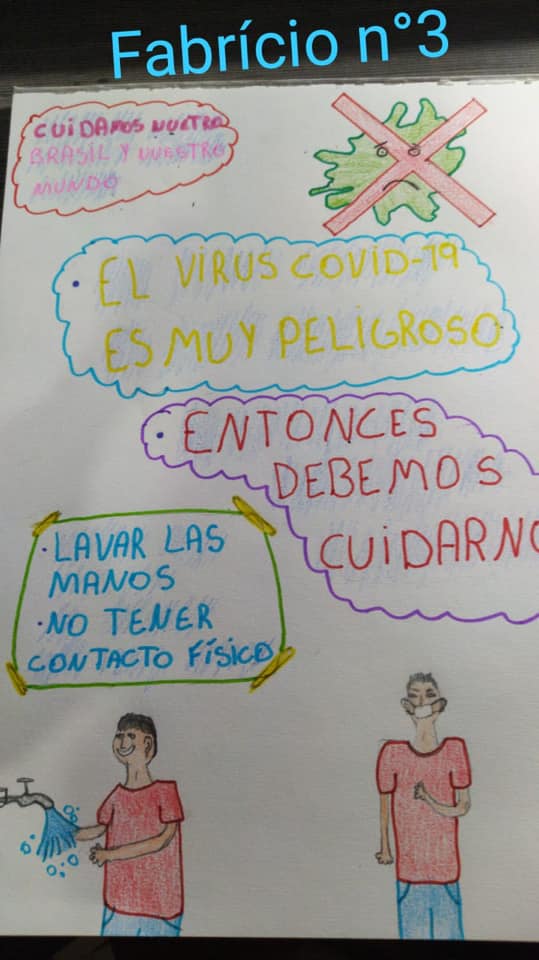 Fabrício n°3
CUIDAMOS NUETRO
BRASIL Y NUESTRO
MUNDO
• EL VIRUS COVID-19
ES MUY PELIGROSO
• ENTONCES
DEBEMOS
CUIDARNO
• LAVAR LAS
MANOS
• NO TENER
CONTACTO FÍSICO